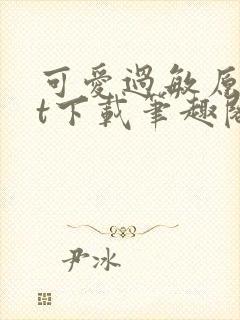 可愛過敏原
t下載筆趣閣
尹冰